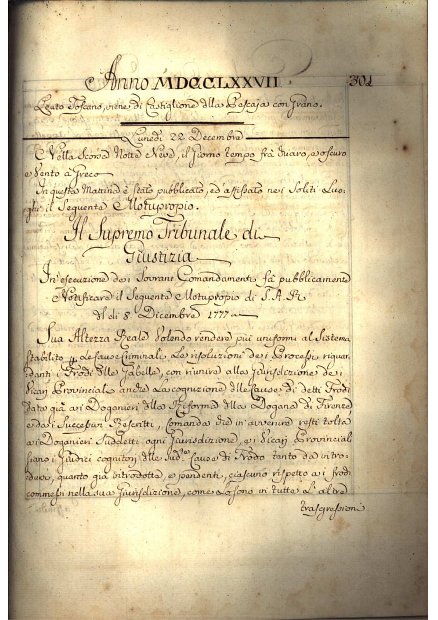 Anno MDCCLXXVII 301
Leuto Toscano, viene di Castiglione della Pescaja con Grano.
Lunedì 22 Decembre
Nella Scorsa Notte Neve, il Giorno tempo frà Chiaro, e oscuro
e Vento à Greco
In questa Mattina è stato pubblicato, ed affissato nei Soliti Luo-
ghi il Seguente Motuproprio.
Il Supremo Tribunale di
Giustizia
In esecuzione dei Sovrani Comandamenti fà pubblicamente
Notificare il Seguente Motupropio di S. A. R.
Il dì 9 Decembre 1777
Sua Altezza Reale Volendo rendere più uniformi al Sistema
Stabilito p le Cause Criminali Le risoluzioni dei Processi riguar-
danti Frodi delle Gabelle, con riunire alla Jurisdizione dei
Vicari Provinciali anche La cognizione delle Cause di detti Frodi
data già ai Doganieri della Riforma della Dogana di Firenze
e dai Successivi Rescritti, Comanda che in avvenire resti tolta
ai Doganieri Sudetti ogni Jurisdizione, e i Vicari Provinciali
siano i Giudici cognitori delle Sudte Cause di Frodo tanto da intro-
dursi, quanto già introdotte, e pendenti, ciascuno rispetto ai frodi
commessi nella sua Giurisdizione, come Lo sono in tutte Le altre
trasgressioni